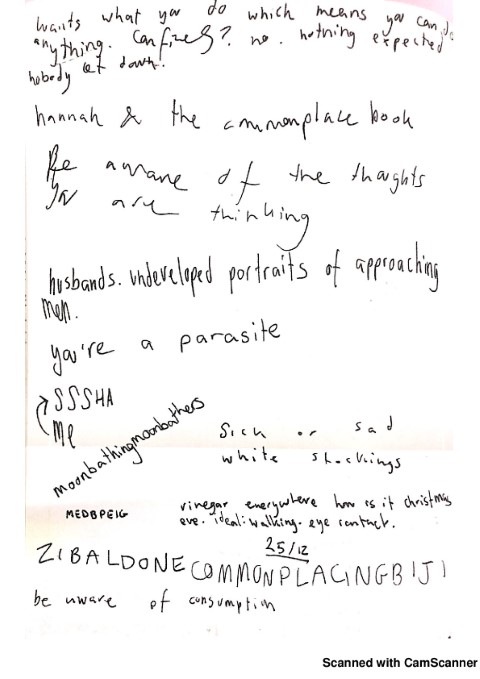 wants what you do which means you can do
anything. Confined? no. nothing expected
nobody let down.
hannah & the commonplace book
Be aware of the thoughts
you are thinking
husbands. undeveloped portraits of approaching
men.
you're a parasite
SSSHA
Me
moonbathingmoonbathers
Sick or sad
white stockings
vinegar everywhere how is it christmas
eve. ideal: walking. eye contact.
MEDBPEIG
25/12
ZIBALDONE COMMONPLACINGBIJI
be aware of consumption
Scanned with CamScanner